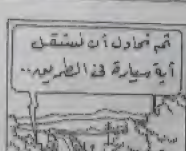 ثم نحاول أن نستقل
أية سيارة فى الطريق..